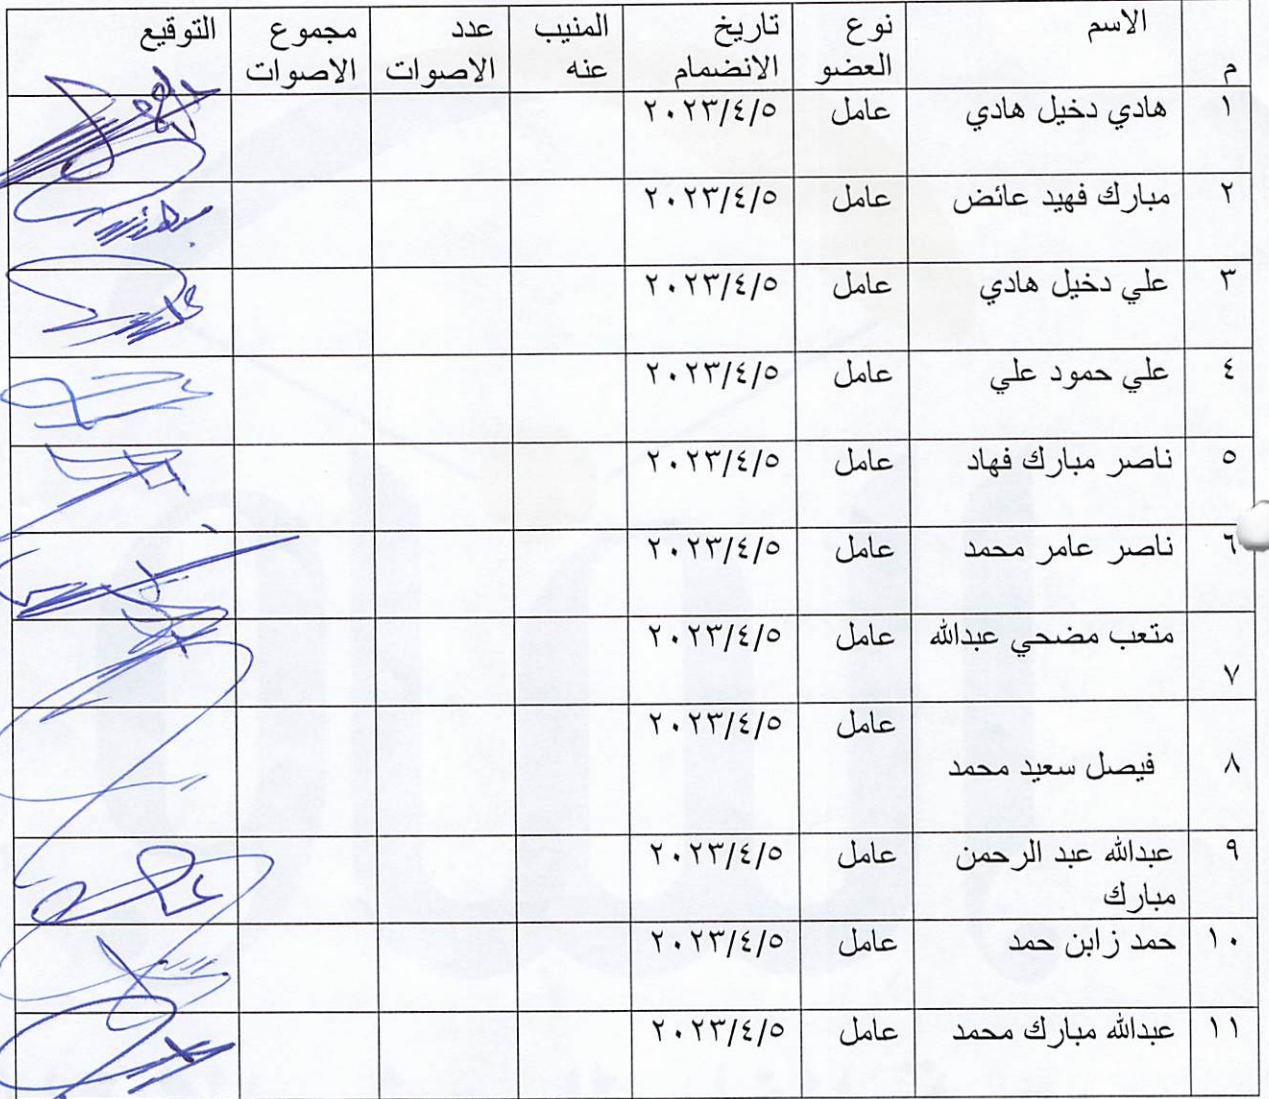 م الاسم نوع العضو تاريخ الانضمام المنيب عنه عدد الاصوات مجموع الاصوات التوقيع
١ هادي دخيل هادي عامل ٢٠٢٣/٤/٥
٢ مبارك فهيد عائض عامل ٢٠٢٣/٤/٥
٣ علي دخيل هادي عامل ٢٠٢٣/٤/٥
٤ علي حمود علي عامل ٢٠٢٣/٤/٥
٥ ناصر مبارك فهاد عامل ٢٠٢٣/٤/٥
٦ ناصر عامر محمد عامل ٢٠٢٣/٤/٥
٧ متعب مضحي عبدالله عامل ٢٠٢٣/٤/٥
٨ فيصل سعيد محمد عامل ٢٠٢٣/٤/٥
٩ عبدالله عبد الرحمن مبارك عامل ٢٠٢٣/٤/٥
١٠ حمد زابن حمد عامل ٢٠٢٣/٤/٥
١١ عبدالله مبارك محمد عامل ٢٠٢٣/٤/٥